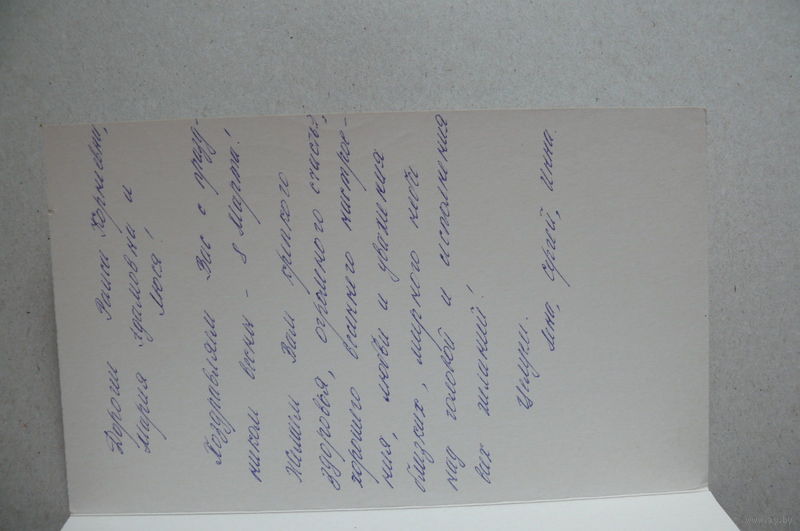 Дорогие Раиса Корнеевна,
Мария Адамовна и
Люся!
Поздравляем Вас с празд-
ником весны - 8 Марта!
Желаем Вам крепкого
здоровья, огромного счастья,
хорошего весеннего настрое-
ния, любви и уважения
близких, мирного неба
над головой и исполнения
всех желаний!
Целуем.
Яна, Сергей, Инна.